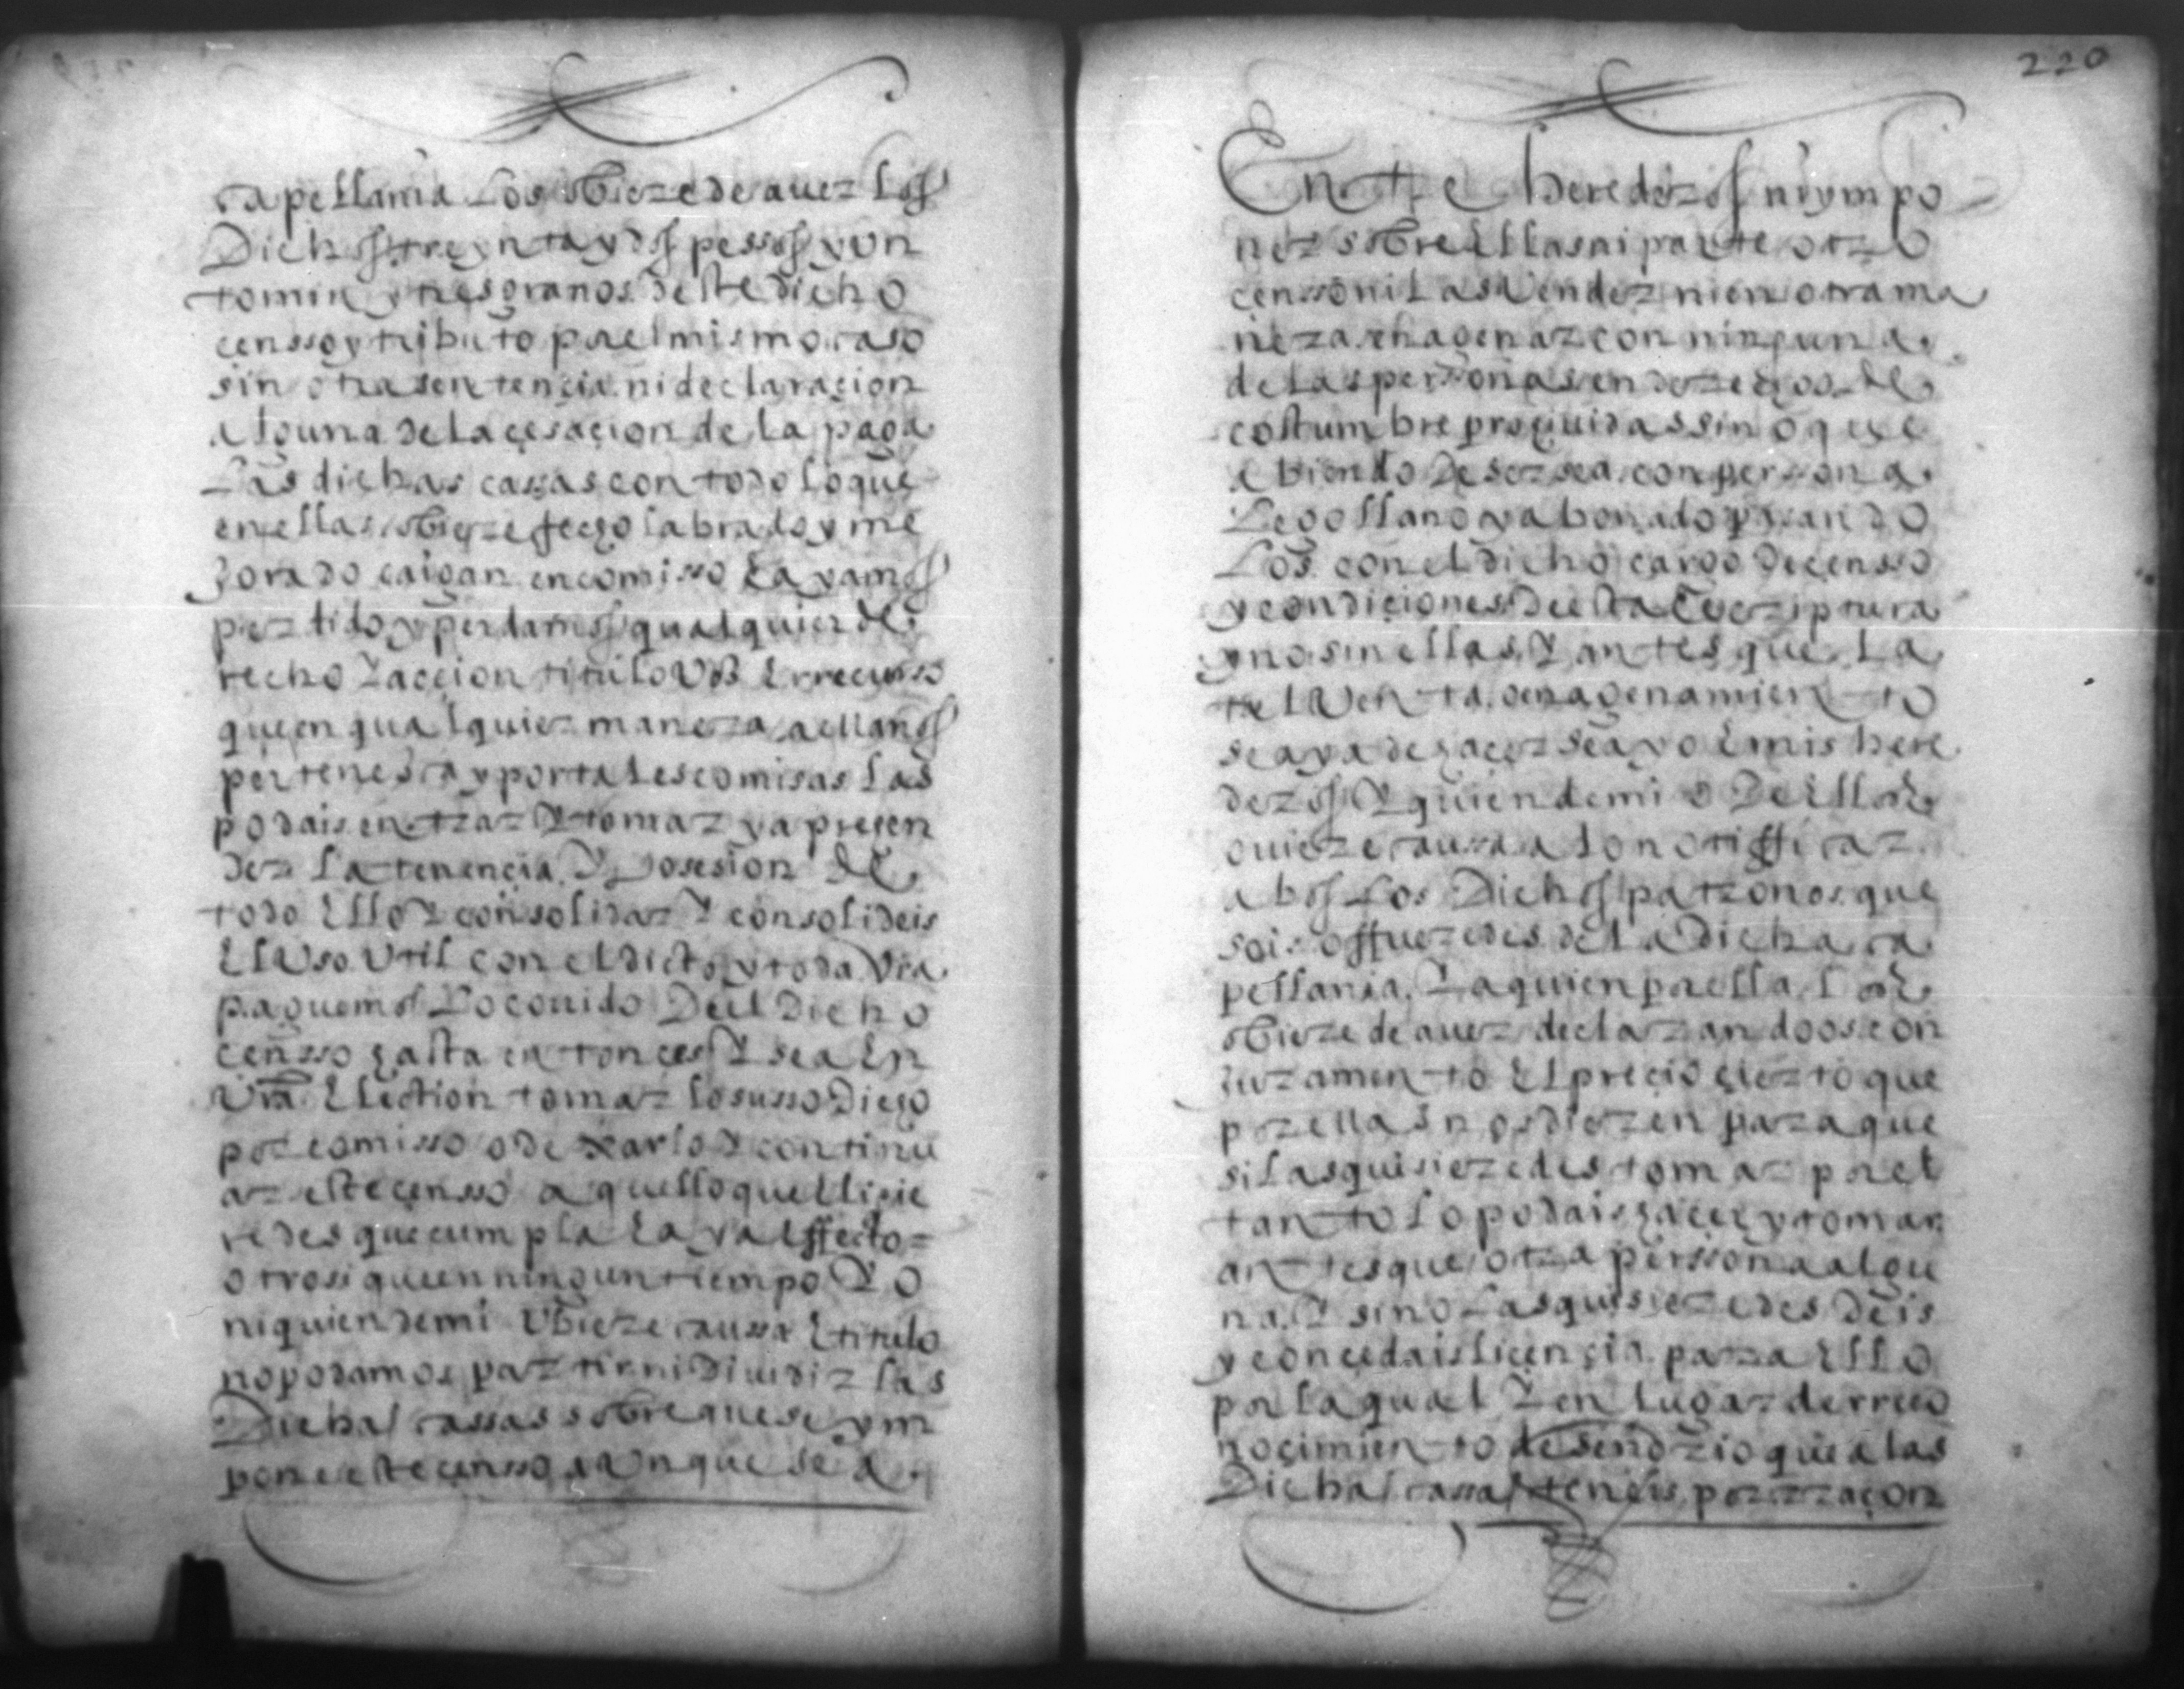 capellania los obiere de auer los
Dichos treynta y dos pessos y un
tomin y tres granos deste dicho
censso y tributo por el mismo caso
sin otra sentençia ni declaraçion
alguna de la çesaçion de la paga
Las dichas cassas con todo lo que
en ellas obiere fecho labrado y me
jorado caigan en comisso E ayamos
perdido y perdamos qualquier de
recho Y acçion titulo Vos E rrecursso
que en qualquier manera a ellanos
pertenesca y por tales comisas las
podais entrar Y tomar y apreçen
der La tenençia Y Posesion de
todo Ello Y consolidar Y consolideis
El Uso Util con el dicto y toda Via
paguemos Lo corrido Deel Dicho
çensso hasta entonces Y sea En
Vra Election tomar lo susso Dicho
por comisso o de xarlo Y continu
ar este çensso aquello que Eligie
redes que cumpla E aya Effecto =
otrosi que en ningun tiempo Yo
ni quien de mi Ubiere caussa E titulo
no podamos partir ni Diuidir las
Dichas cassas sobre que se ym
pone este çensso aunque sea
220
Entre herederos ni ympo
ner sobre Ellas ni parte otro
censso ni Las Vender ni en otra ma
nera enagenar con ninguna
de Las perssonas en derecho de
costumbre prohiuidas sino que
abiendo de ser sea con perssona
Lego llano y abonado y pasando
Los con el dicho cargo de çensso
y condiçiones de esta Escriptura
y no sin ellas Y antes que La
tal Venta o enagenamiento
se aya de haçer sea yo E mis here
deros Y quien de mi o De Ellos
ouiere caussa a lo notifficar
a bos Los Dichos patronos que
sois o fueredes de La Dicha ca
pellania Y a quien por ella Los
obiere de auer declarandoos con
juramento El preçio çierto que
por ellas nos dieren para que
si Las quisieredes tomar por el
tanto Lo podais haçer y tomar
antes que otra perssona algu
na Y si no Las quisieredes deis
y conçedais liçençia para Ello
por la qual Y en lugar de rreco
noçimiento de señorio que a las
Dichas cassas teneis por rraçon